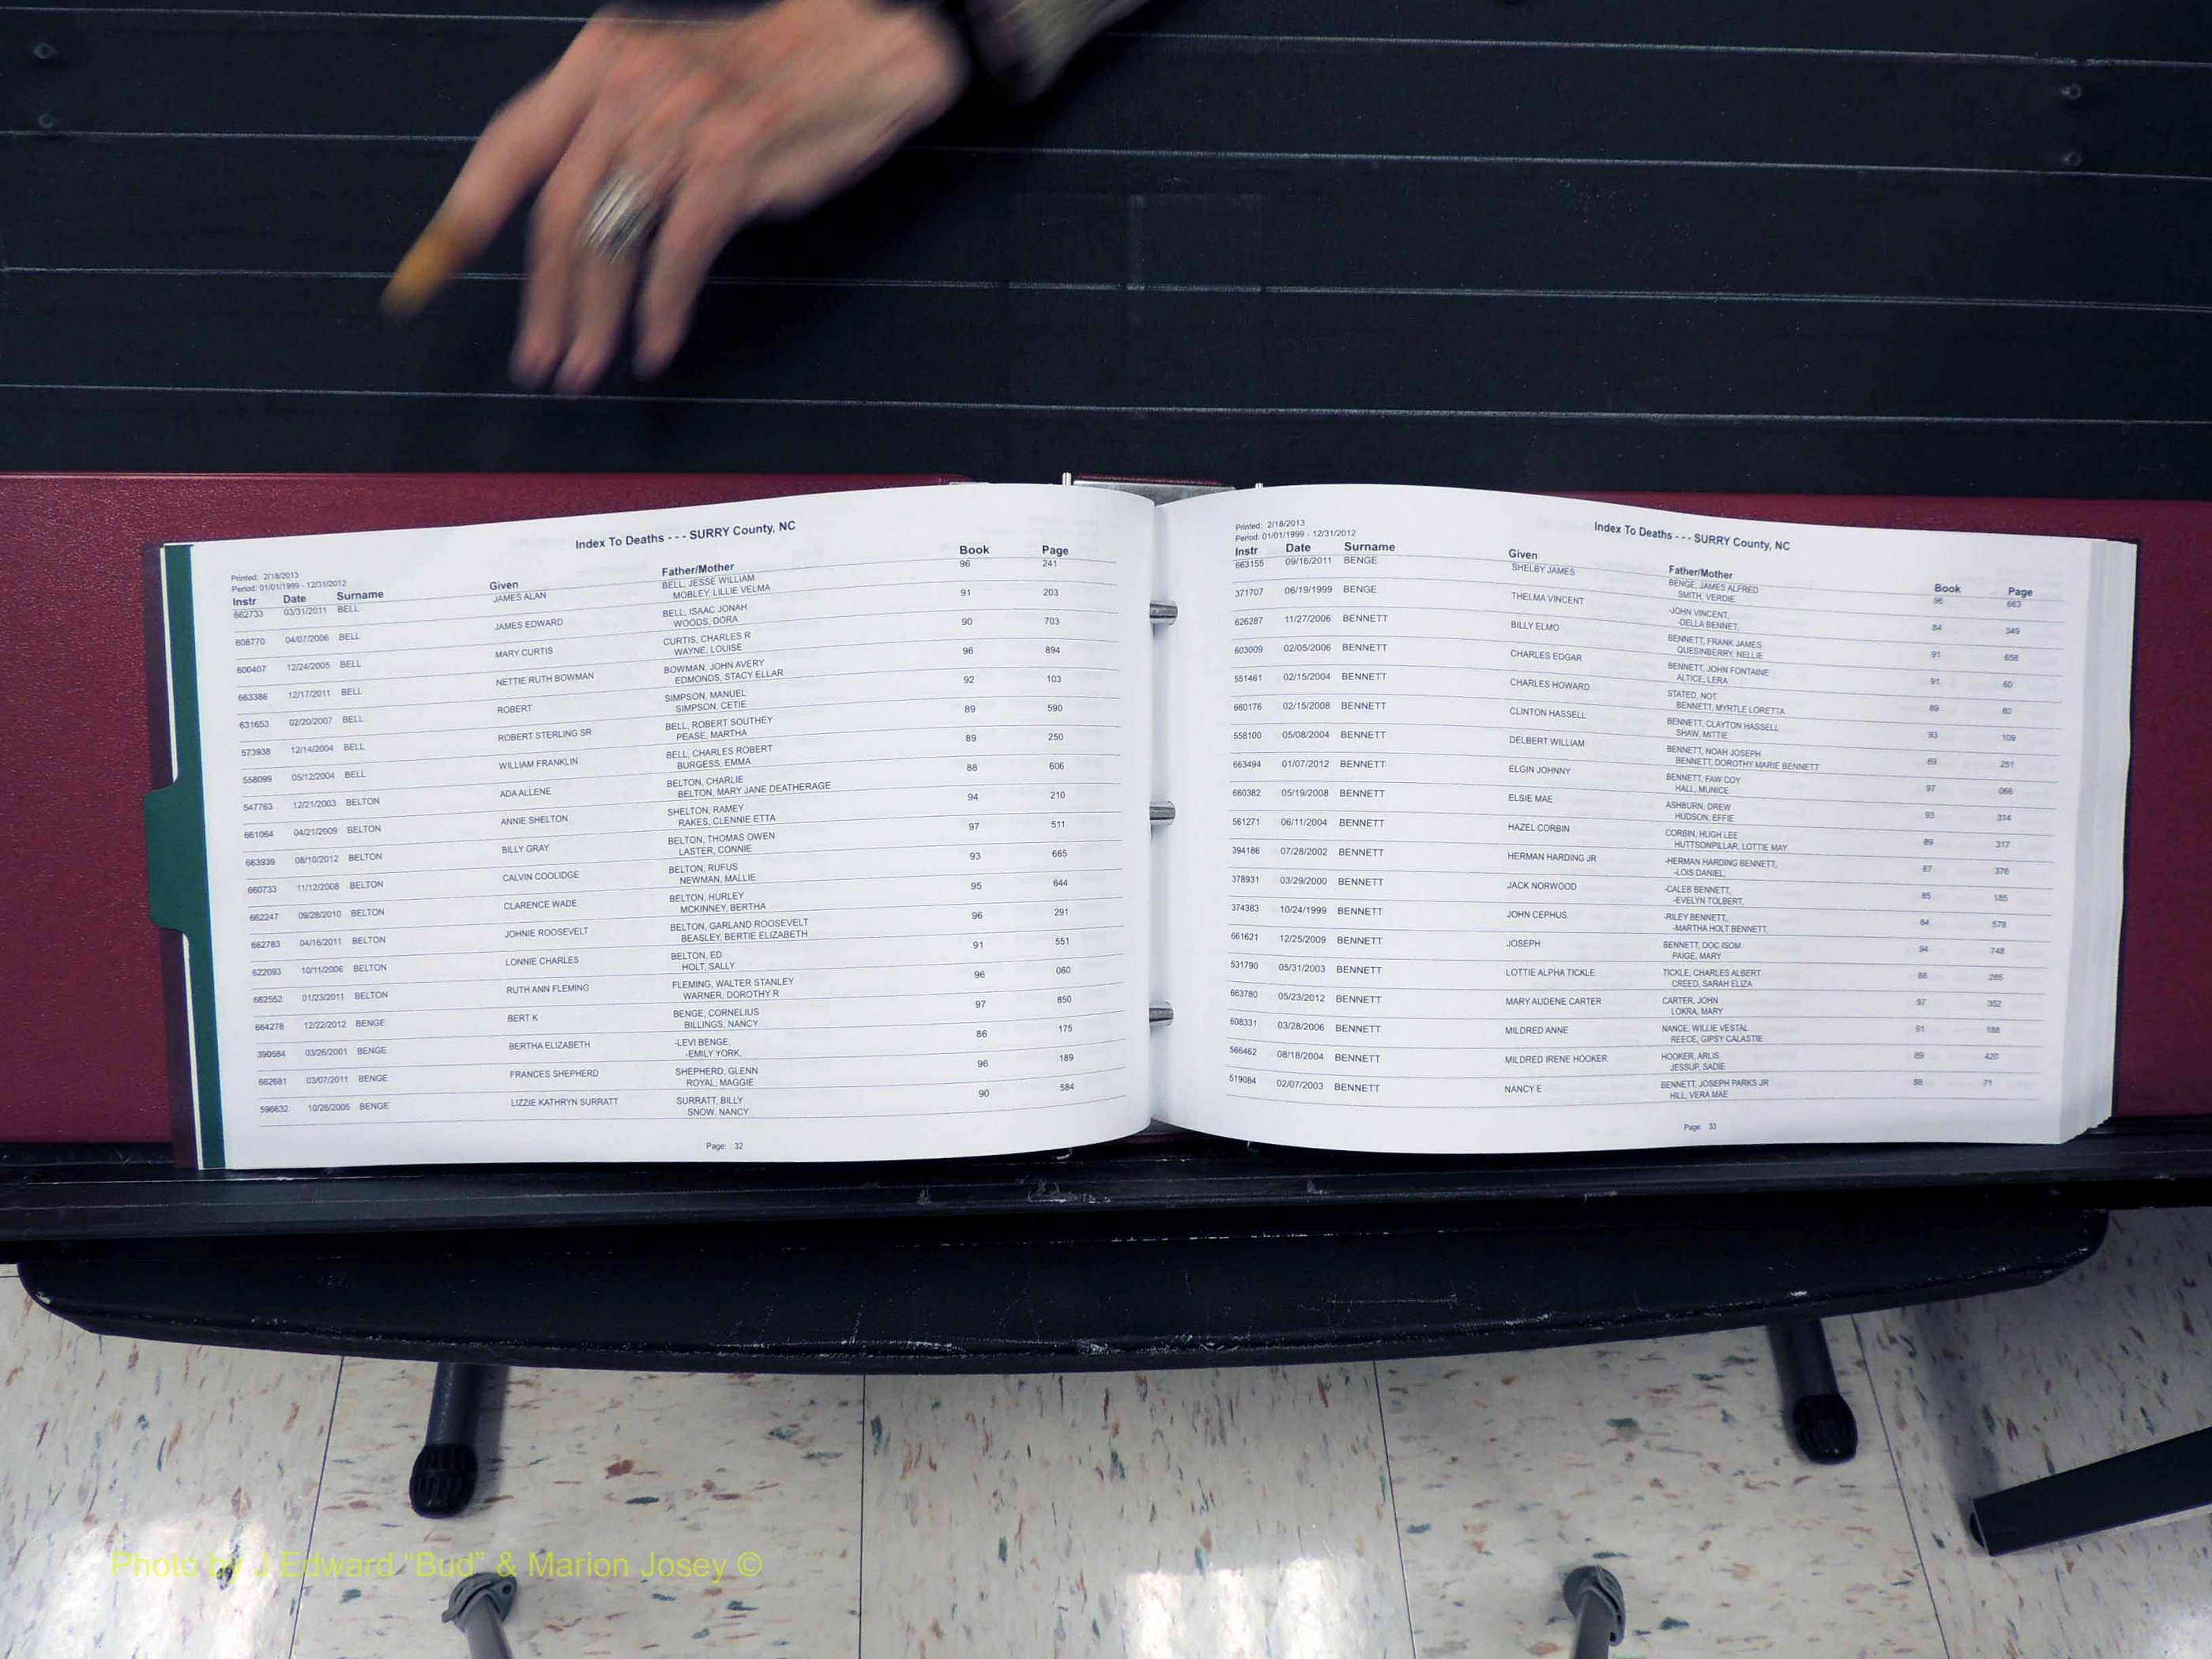 Index To Deaths - - - SURRY County, NC
Printed: 2/18/2013
Period: 01/01/1999 - 12/31/2012
Instr Date Surname Given Father/Mother Book Page
662733 03/31/2011 BELL JAMES ALAN BELL, JESSE WILLIAM 96 241
MOBLEY, LILLIE VELMA
608770 04/07/2006 BELL JAMES EDWARD BELL, ISAAC JONAH 91 203
WOODS, DORA
600407 12/24/2005 BELL MARY CURTIS CURTIS, CHARLES R 90 703
WAYNE, LOUISE
663386 12/17/2011 BELL NETTIE RUTH BOWMAN BOWMAN, JOHN AVERY 96 894
EDMONDS, STACY ELLAR
631653 02/20/2007 BELL ROBERT SIMPSON, MANUEL 92 103
SIMPSON, CETIE
573938 12/14/2004 BELL ROBERT STERLING SR BELL, ROBERT SOUTHEY 89 590
PEASE, MARTHA
558099 05/12/2004 BELL WILLIAM FRANKLIN BELL, CHARLES ROBERT 89 250
BURGESS, EMMA
547763 12/21/2003 BELTON ADA ALLENE BELTON, CHARLIE 88 606
BELTON, MARY JANE DEATHERAGE
661064 04/21/2009 BELTON ANNIE SHELTON SHELTON, RAMEY 94 210
RAKES, CLENNIE ETTA
663939 08/10/2012 BELTON BILLY GRAY BELTON, THOMAS OWEN 97 511
LASTER, CONNIE
660733 11/12/2008 BELTON CALVIN COOLIDGE BELTON, RUFUS 93 665
NEWMAN, MALLIE
662247 09/28/2010 BELTON CLARENCE WADE BELTON, HURLEY 95 644
MCKINNEY, BERTHA
662783 04/16/2011 BELTON JOHNIE ROOSEVELT BELTON, GARLAND ROOSEVELT 96 291
BEASLEY, BERTIE ELIZABETH
622093 10/11/2006 BELTON LONNIE CHARLES BELTON, ED 91 551
HOLT, SALLY
662552 01/23/2011 BELTON RUTH ANN FLEMING FLEMING, WALTER STANLEY 96 060
WARNER, DOROTHY R
664278 12/22/2012 BENGE BERT K BENGE, CORNELIUS 97 850
BILLINGS, NANCY
390584 03/26/2001 BENGE BERTHA ELIZABETH -LEVI BENGE, 86 175
-EMILY YORK,
662681 03/07/2011 BENGE FRANCES SHEPHERD SHEPHERD, GLENN 96 189
ROYAL, MAGGIE
596632 10/26/2005 BENGE LIZZIE KATHRYN SURRATT SURRATT, BILLY 90 584
SNOW, NANCY
Page: 32
Index To Deaths - - - SURRY County, NC
Printed: 2/18/2013
Period: 01/01/1999 - 12/31/2012
Instr Date Surname Given Father/Mother Book Page
663155 09/16/2011 BENGE SHELBY JAMES BENGE, JAMES ALFRED 96 663
SMITH, VERDIE
371707 06/19/1999 BENGE THELMA VINCENT -JOHN VINCENT, 84 349
-DELLA BENNET,
626287 11/27/2006 BENNETT BILLY ELMO BENNETT, FRANK JAMES 91 658
QUESINBERRY, NELLIE
603009 02/05/2006 BENNETT CHARLES EDGAR BENNETT, JOHN FONTAINE 91 60
ALTICE, LERA
551461 02/15/2004 BENNETT CHARLES HOWARD STATED, NOT 89 60
BENNETT, MYRTLE LORETTA
660176 02/15/2008 BENNETT CLINTON HASSELL BENNETT, CLAYTON HASSELL 93 109
SHAW, MITTIE
558100 05/08/2004 BENNETT DELBERT WILLIAM BENNETT, NOAH JOSEPH 89 251
BENNETT, DOROTHY MARIE BENNETT
663494 01/07/2012 BENNETT ELGIN JOHNNY BENNETT, FAW COY 97 066
HALL, MUNICE
660382 05/19/2008 BENNETT ELSIE MAE ASHBURN, DREW 93 314
HUDSON, EFFIE
561271 06/11/2004 BENNETT HAZEL CORBIN CORBIN, HUGH LEE 89 317
HUTTSONPILLAR, LOTTIE MAY
394186 07/28/2002 BENNETT HERMAN HARDING JR -HERMAN HARDING BENNETT, 87 376
-LOIS DANIEL,
378931 03/29/2000 BENNETT JACK NORWOOD -CALEB BENNETT, 85 185
-EVELYN TOLBERT,
374383 10/24/1999 BENNETT JOHN CEPHUS -RILEY BENNETT, 84 578
-MARTHA HOLT BENNETT,
661621 12/25/2009 BENNETT JOSEPH BENNETT, DOC ISOM 94 748
PAIGE, MARY
531790 05/31/2003 BENNETT LOTTIE ALPHA TICKLE TICKLE, CHARLES ALBERT 88 285
CREED, SARAH ELIZA
663780 05/23/2012 BENNETT MARY AUDENE CARTER CARTER, JOHN 97 352
LOKRA, MARY
608331 03/28/2006 BENNETT MILDRED ANNE NANCE, WILLIE VESTAL 91 188
REECE, GIPSY CALASTIE
566462 08/18/2004 BENNETT MILDRED IRENE HOOKER HOOKER, ARLIS 89 420
JESSUP, SADIE
519084 02/07/2003 BENNETT NANCY E BENNETT, JOSEPH PARKS JR 88 71
HILL, VERA MAE
Page: 33
Photo by J Edward "Bud" & Marion Josey ©